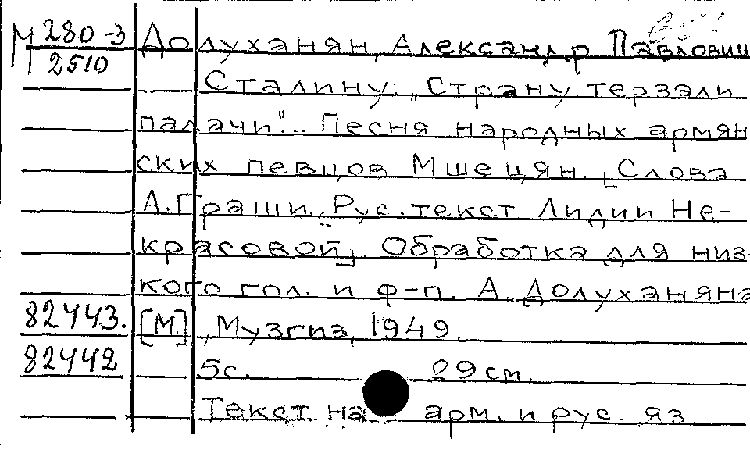 М 280-3
2510
Долуханян, Александр Павлович
Сталину. „Страну терзали
палачи"... Песня народных армян
ских певцов Мшецян. [Слова
А. Граши. Рус. текст Лидии Не-
красовой]. Обработка для низ
кого гол. и ф-п. А. Долуханяна
82443. [М], Музгиз, 1949
82442 5с. 29 см.
Текст на арм. и рус. яз